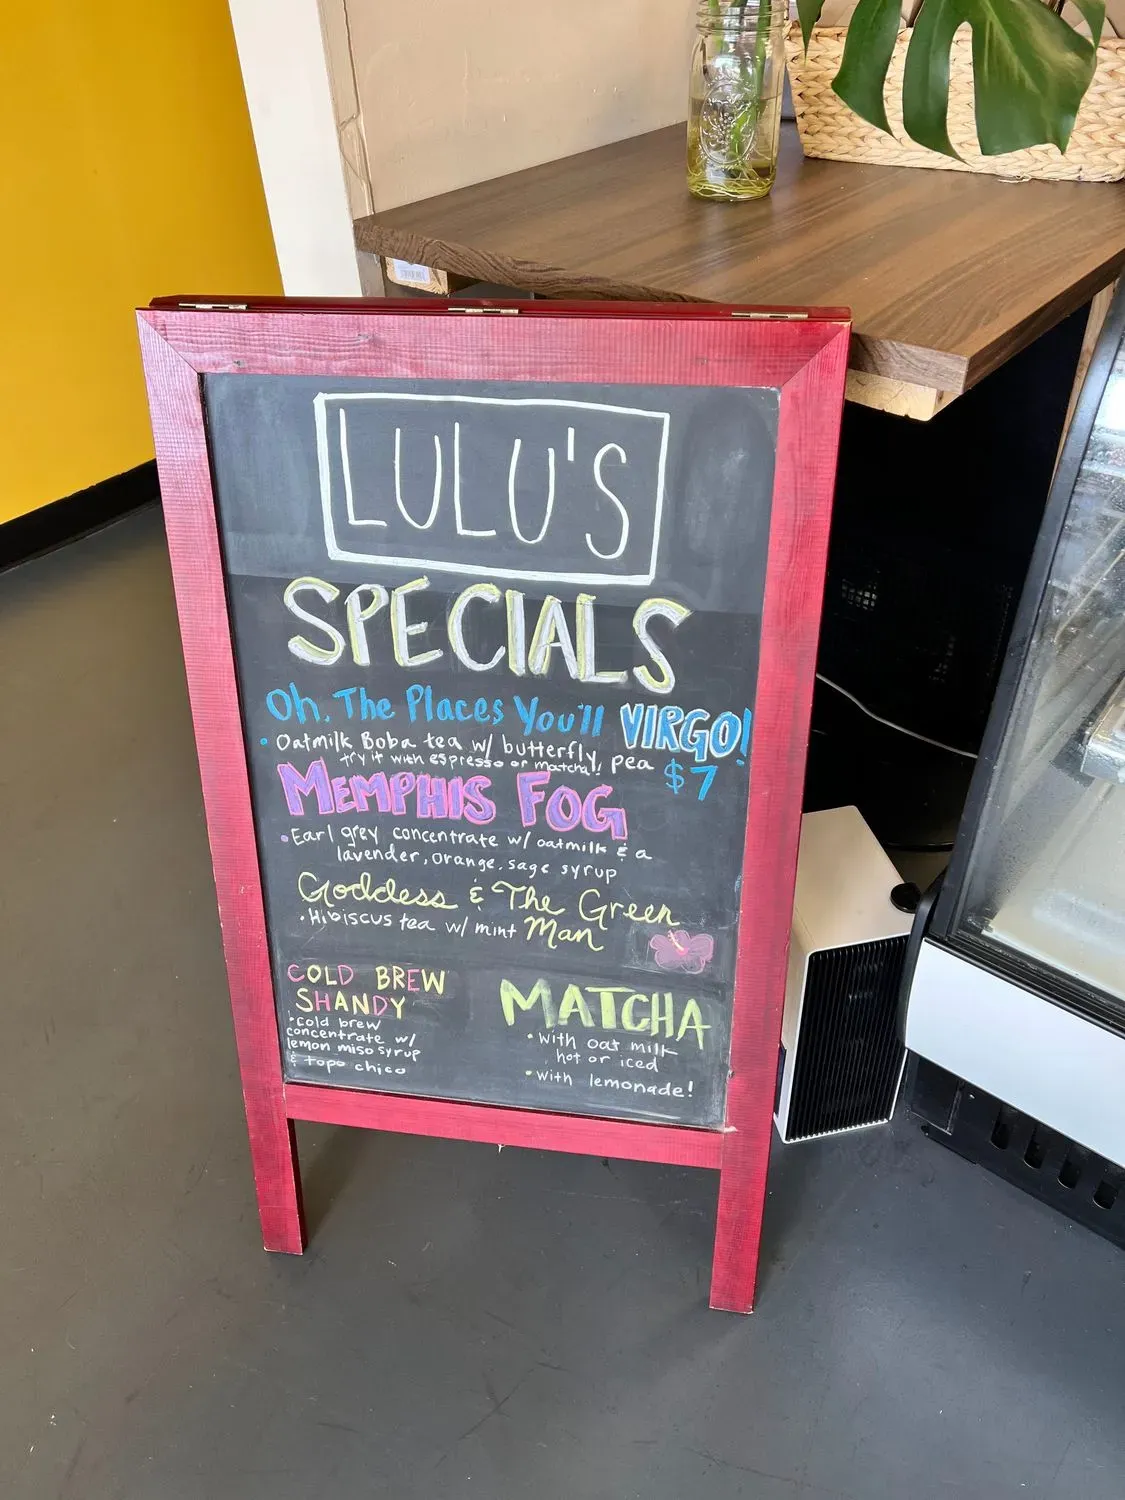 LULU'S
SPECIALS
Oh, The Places You'll VIRGO!
• Oatmilk Boba tea w/ butterfly, pea
try it with espresso or matcha! $7
MEMPHIS FOG
• Earl grey concentrate w/ oatmilk & a
lavender, orange, sage syrup
Goddess & The Green
Man
• Hibiscus tea w/ mint
COLD BREW
SHANDY
• cold brew
concentrate w/
lemon miso syrup
& topo chico
MATCHA
• with oat milk
hot or iced
• with lemonade!